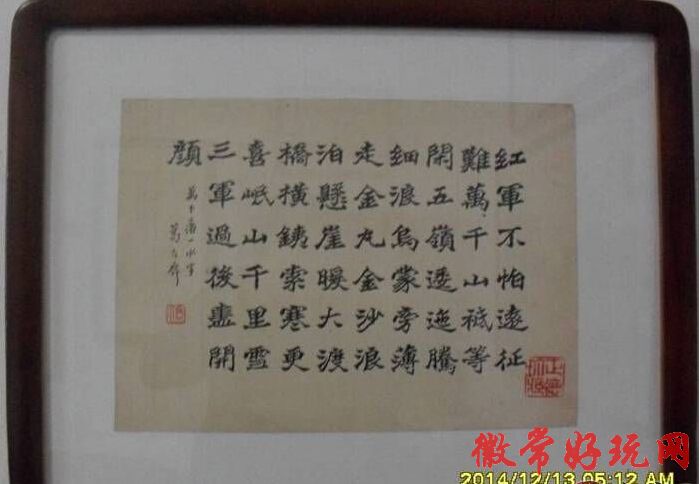 紅軍不怕遠征
難萬千山祗等
閑五嶺逶迤騰
細浪烏蒙旁薄
走金丸金沙浪
泊懸崖暖大渡
橋橫銕索寒更
喜岷山千里雪
三軍過後盡開
顏
萬下漏一水字
徽常好玩网
2014/12/13 05:12 AM